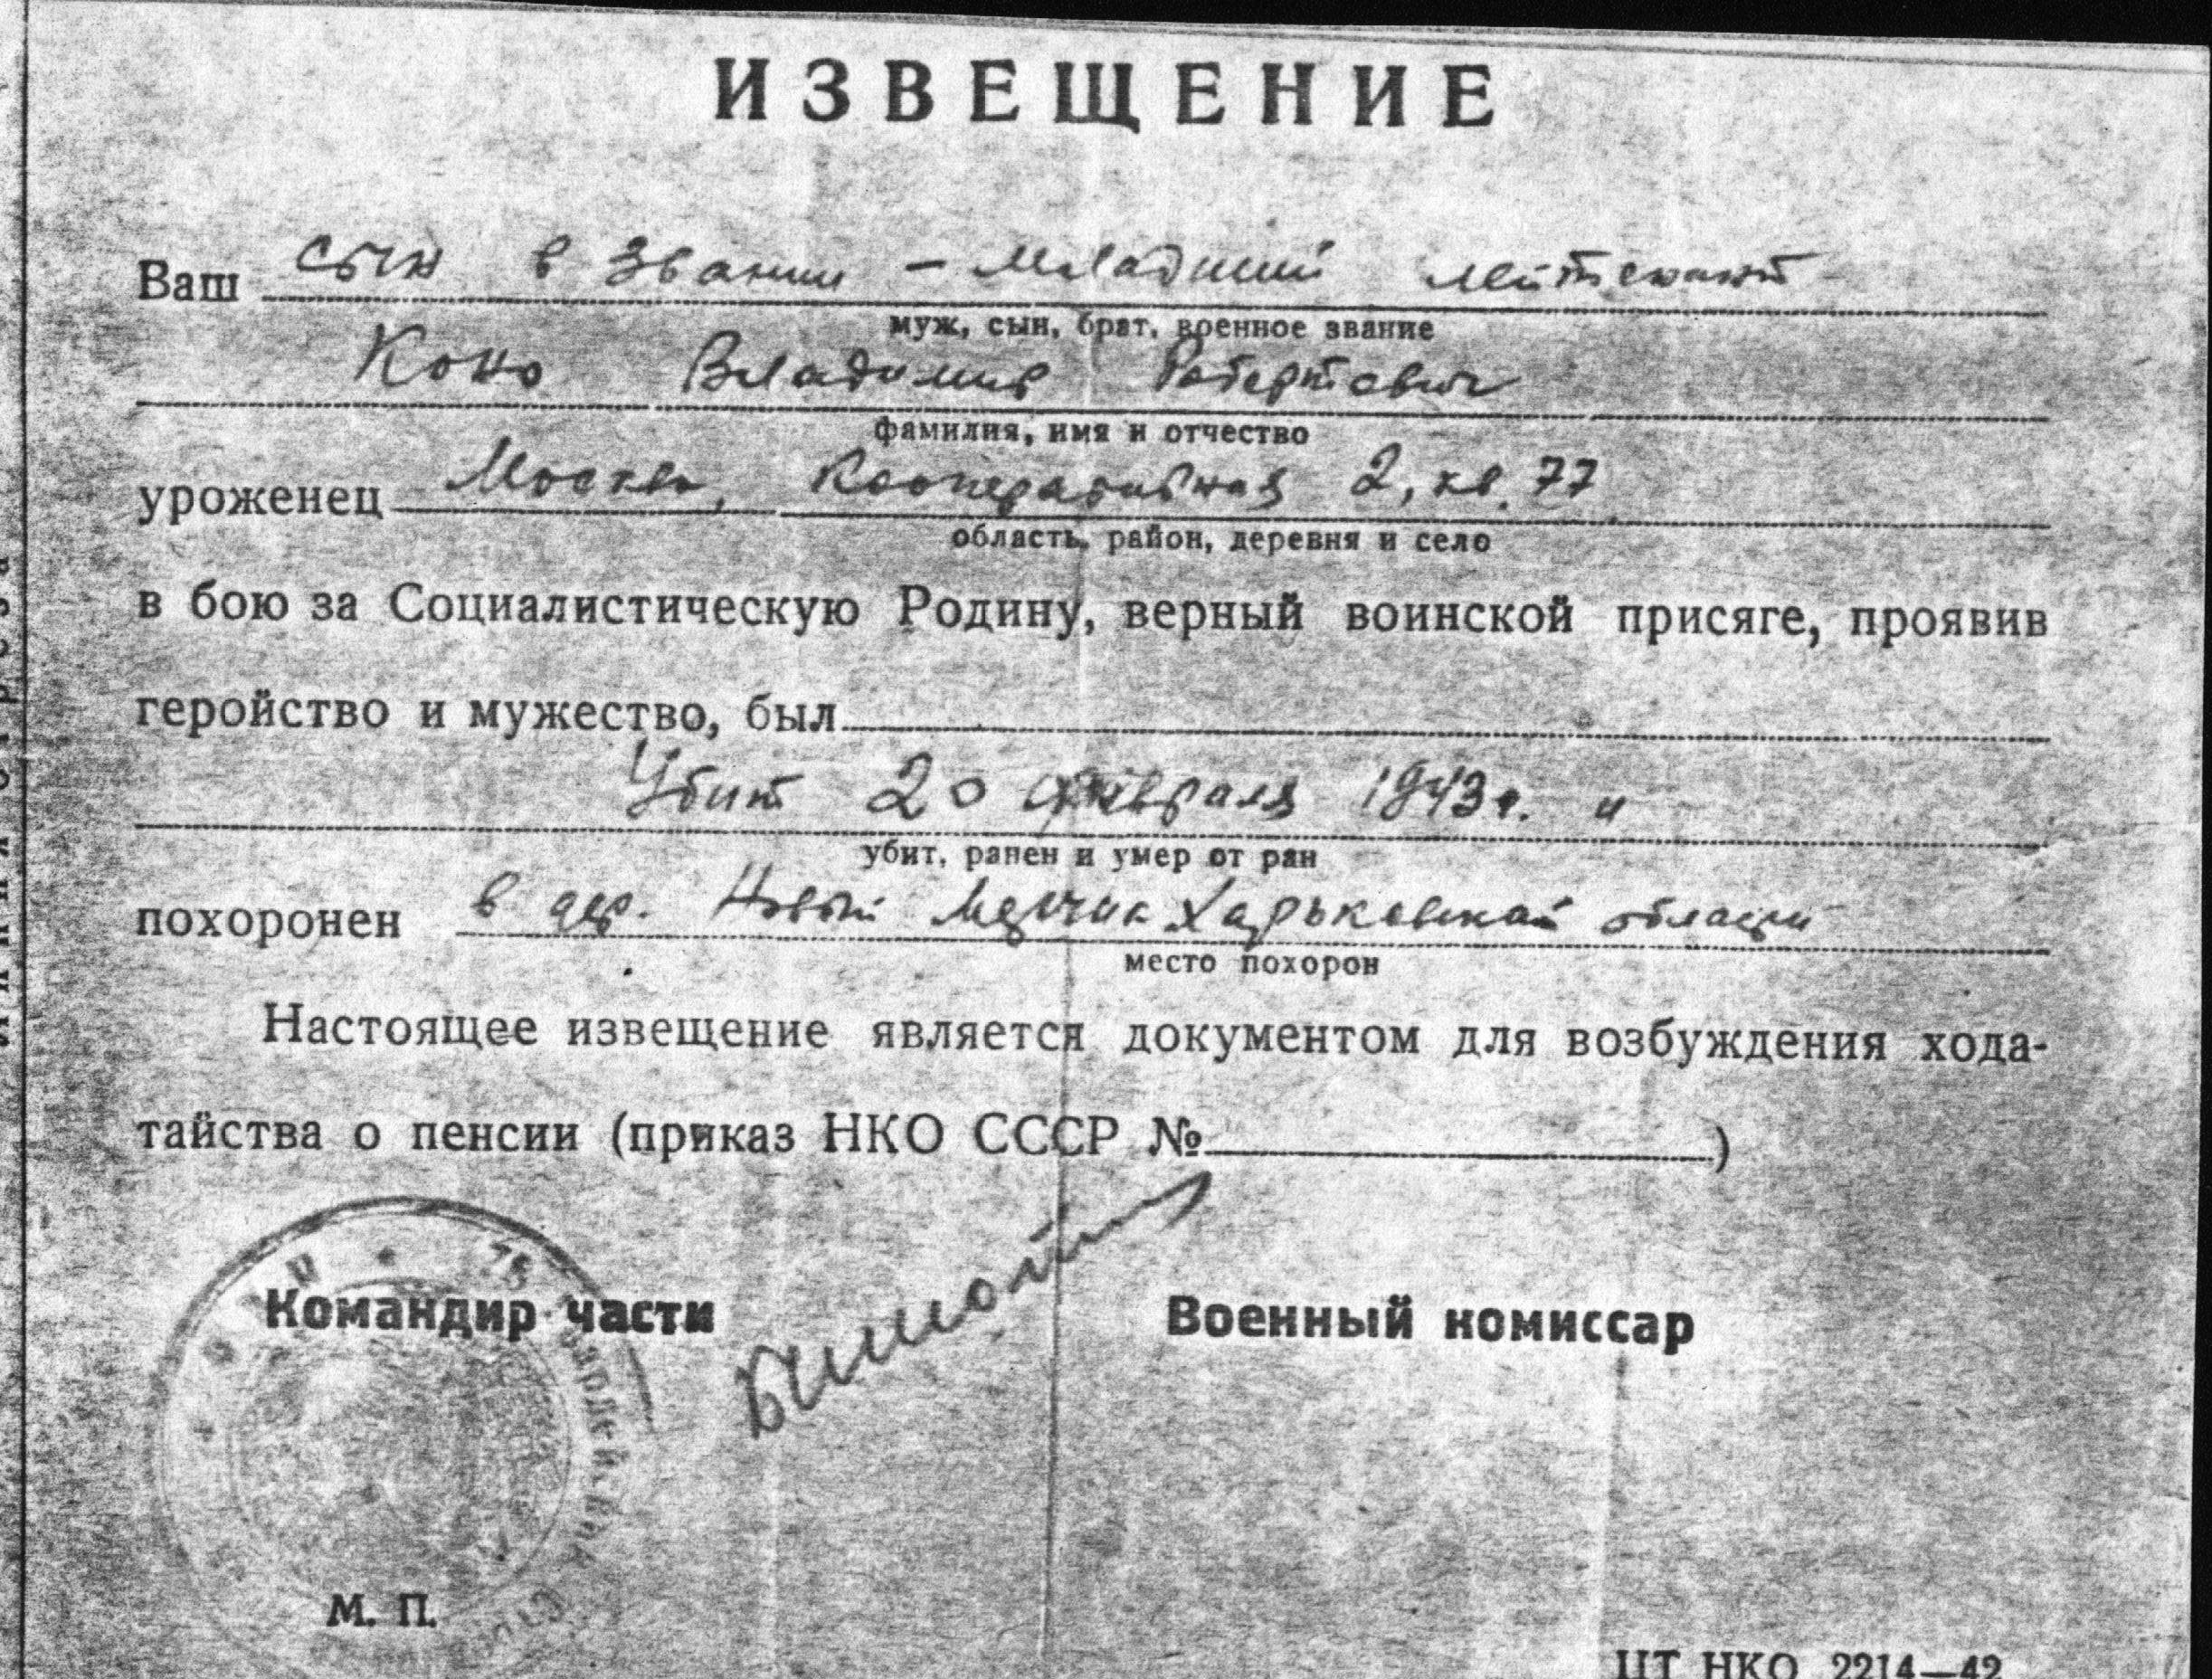 ИЗВЕЩЕНИЕ
Ваш сын в звании – младший лейтенант
муж, сын, брат, военное звание
Коно Владимир Робертович
фамилия, имя и отчество
уроженец Москва, Кооперативная 2, кв. 77
область, район, деревня и село
в бою за Социалистическую Родину, верный воинской присяге, проявив
геройство и мужество, был
Убит 20 февраля 1943 г. и
убит, ранен и умер от ран
похоронен в дер. Новый Мерчик Харьковской области
место похорон
Настоящее извещение является документом для возбуждения хода-
тайства о пенсии (приказ НКО СССР №)
Командир части Военный комиссар
М. П.
ЦТ НКО 2214—42